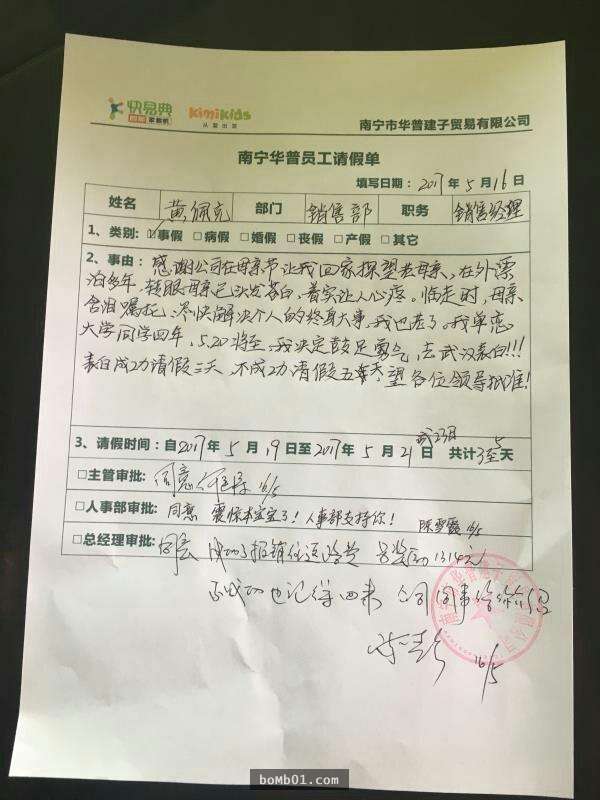 快易典
kimikids
从爱出发
南宁市华普建子贸易有限公司
南宁华普员工请假单
填写日期：2017年5月16日
姓名 黄佩克 部门 销售部 职务 销售经理
1、类别：☑事假 □病假 □婚假 □丧假 □产假 □其它
2、事由：感谢公司在母亲节让我回家探望老母亲，在外漂
泊多年，转眼母亲已头发苍白，着实让人心疼。临走时，母亲
含泪嘱托，尽快解决个人的终身大事，我也急了。我单恋
大学同学四年，5.20将至，我决定鼓足勇气，去武汉表白!!!
表白成功请假三天，不成功请假五天，望各位领导批准！
3、请假时间：自2017年5月19日至2017年5月21或23日 共计3至5天
□主管审批：同意 16/5
□人事部审批：同意 震惊本宝宝了！人事部支持你！ 陈雪霞 16/5
□总经理审批：同意 成功了报销往返路费 另奖励1314元
不成功也记得回来 公司同事给你介绍
16/5
bomb01.com